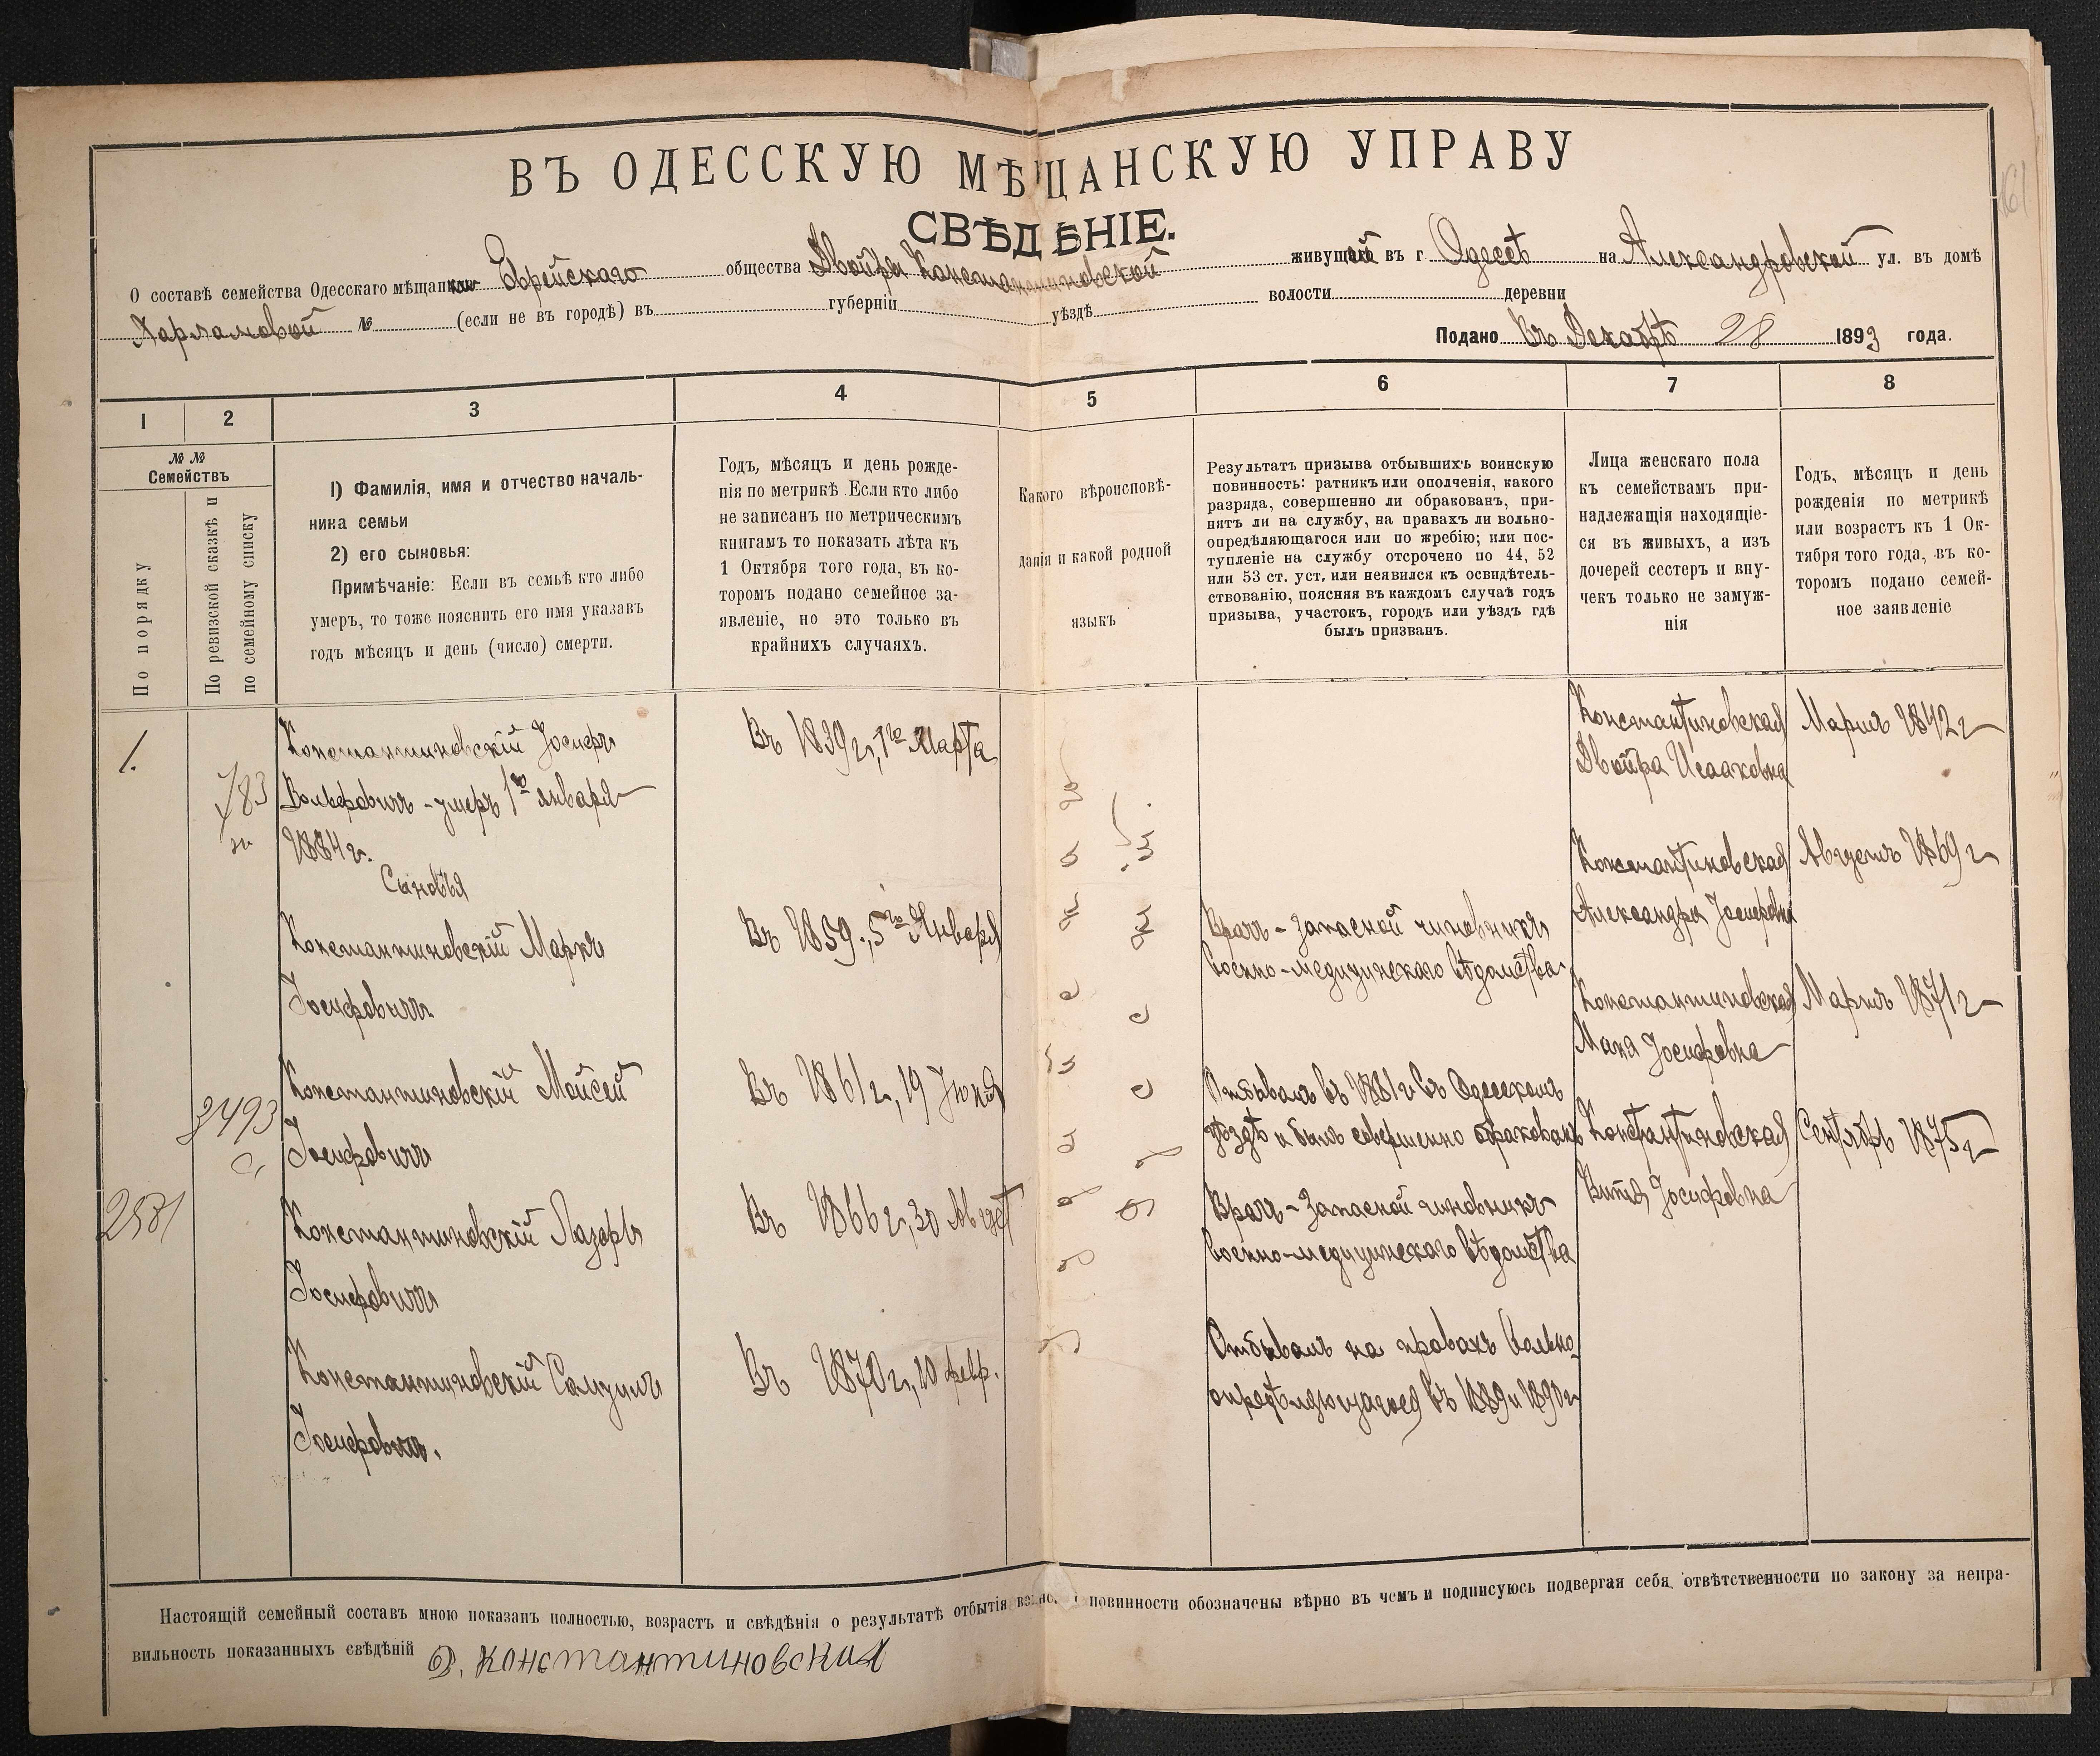 ВЪ ОДЕССКУЮ МѢЩАНСКУЮ УПРАВУ
СВѢДѢНІЕ.
О составѣ семейства Одесскаго мѣщанки Еврейскаго общества Двойра Константиновской живущей въ г Одессѣ на Александровской ул. въ домѣ
Харламовой № (если не въ городѣ) въ губерніи уѣздѣ волости деревни
Подано Въ Декабрѣ 28 1893 года.
1 2 3 4 5 6 7 8
№ №
Семействъ
По порядку
По ревизской сказкѣ и
по семейному списку
1) Фамилія, имя и отчество началь-
ника семьи
2) его сыновья:
Примѣчаніе: Если въ семьѣ кто либо
умеръ, то тоже пояснить его имя указавъ
годъ мѣсяцъ и день (число) смерти.
Годъ, мѣсяцъ и день рожде-
нія по метрикѣ. Если кто либо
не записанъ по метрическимъ
книгамъ то показать лѣта къ
1 Октября того года, въ ко-
торомъ подано семейное за-
явленіе, но это только въ
крайнихъ случаяхъ.
Какого вѣроисповѣ-
данія и какой родной
языкъ
Результатъ призыва отбывшихъ воинскую
повинность: ратникъ или ополченія, какого
разряда, совершенно ли обракованъ, при-
нятъ ли на службу, на правахъ ли вольно-
опредѣляющагося или по жребію; или пос-
тупленіе на службу отсрочено по 44, 52
или 53 ст. уст. или неявился къ освидѣтель-
ствованію, поясняя въ каждомъ случаѣ годъ
призыва, участокъ, городъ или уѣздъ гдѣ
былъ призванъ.
Лица женскаго пола
къ семействамъ при-
надлежащія находящіе-
ся въ живыхъ, а изъ
дочерей сестеръ и вну-
чекъ только не замуж-
нія
Годъ, мѣсяцъ и день
рожденія по метрикѣ
или возрастъ къ 1 Ок-
тября того года, въ ко-
торомъ подано семей-
ное заявленіе
1.
783
Константиновскій Іосифъ
Вольфовичъ - умеръ 1го января
1884 г.
Въ 1839 г., 1го Марта
Константиновская
Двойра Исааковна
Мартъ 1842 г
Сыновья
Константиновская
Александра Іосифовна
Августъ 1869 г
Константиновскій Маркъ
Іосифовичъ
Въ 1859., 5го Января
Врачъ - Запасной чиновникъ
военно-медицинскаго вѣдомства
Константиновская
Маня Іосифовна
Мартъ 1871 г
3493
Константиновскій Мойсей
Іосифовичъ
Въ 1861 г., 19 Іюня
Отбывалъ въ 1881 г въ Одесскомъ
уѣздѣ и былъ совершенно обракованъ
Константиновская
Іосифовна
Сентябрь 1875 г
Константиновскій Лазарь
Іосифовичъ
Въ 1866 г., 30 Август
Врачъ - Запасной чиновникъ
военно-медицинскаго вѣдомства
Константиновскій Самуилъ
Іосифовичъ.
Въ 1870 г., 10 февр.
Отбывалъ на правахъ вольно-
опредѣляющагося въ 1889 и 1890 г
русскій.
Настоящій семейный составъ мною показанъ полностью, возрастъ и свѣдѣнія о результатѣ отбытія повинности обозначены вѣрно въ чемъ и подписуюсь подвергая себя отвѣтственности по закону за непра-
вильность показанныхъ свѣдѣній Д. Константиновская